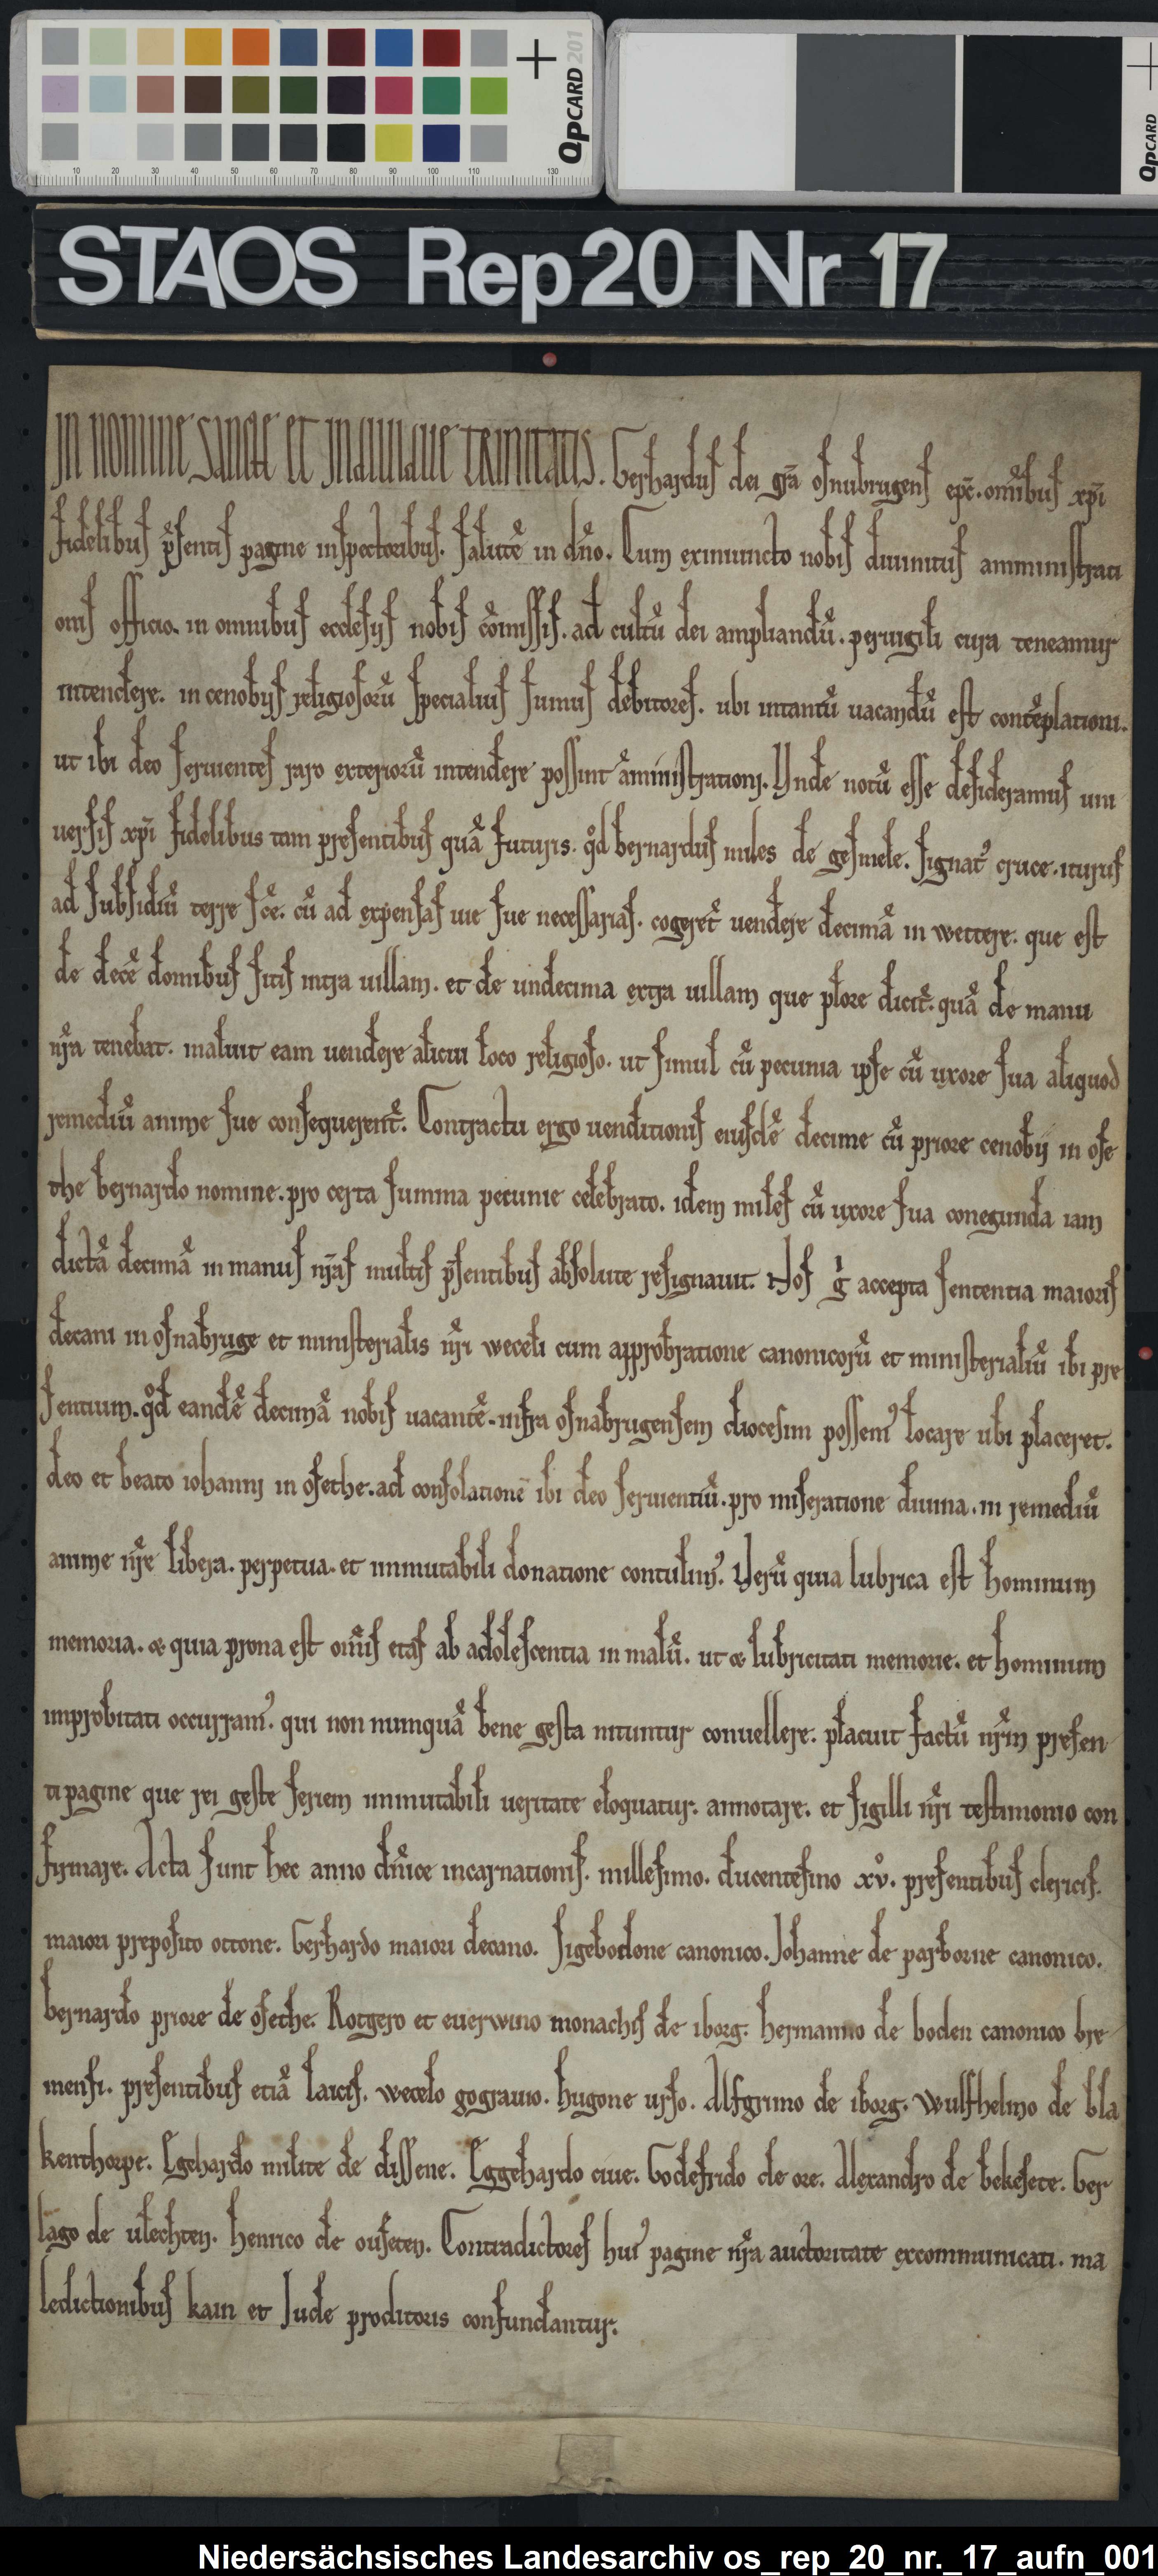 QPCARD 201
10 20 30 40 50 60 70 80 90 100 110 130
QPCARD
STAOS Rep 20 Nr 17
In nomine sancte et indiuidue trinitatis. Gerhardus dei gr̄a osnubrugens̄ ep̄c. om̄ibus xp̄i
fidelibus p̄sentis pagine inspectoribus. salutē in dn̄o. Cum ex iniuncto nobis diuinitus amministrati
onis officio. in omnibus ecclesijs nobis cōmissis. ad cultū dei ampliandū. peruigili cura teneamur
intendere. in cenobijs religiosorū specialius sumus debitores. ubi intantū uacandū est contēplationi.
ut ibi deo seruientes raro exteriorū intendere possint āministrationi. Vnde notū esse desideramus uni
uersis xp̄i fidelibus tam presentibus quā futuris. qd̊ bernardus miles de gesmele. signat᷒ cruce. iturus
ad subsidiū terre sc̄e. cū ad expensas uie sue necessarias. cogeret᷒ uendere decimā in wettere. que est
de decē domibus sitis intra uillam. et de undecima extra uillam que plore dicit᷒. quā de manu
nr̄a tenebat. maluit eam uendere alicui loco religioso. ut simul cū pecunia ipse cū uxore sua aliquod
remediū anime sue consequerent᷒. Contractu ergo uenditionis eiusdē decime cū priore cenobij in ose
the bernardo nomine. pro certa summa pecunie celebrato. idem miles cū uxore sua conegunda iam
dictā decimā in manus nr̄as multis p̄sentibus absolute resignauit. Nos g̊ accepta sententia maioris
decani in osnabruge et ministerialis nr̄i weceli cum approbatione canonicorū et ministerialiū ibi pre
sentium. qd̊ eandē decimā nobis uacantē. infra osnabrugensem diocesim possem᷒ locare ubi placeret.
deo et beato iohanni in osethe. ad consolationē ibi deo seruientiū. pro miseratione diuina. in remediū
anime nr̄e libera. perpetua. et inmutabili donatione contulim᷒. Verū quia lubrica est hominum
memoria. & quia prona est om̄is etas ab adolescentia in malū. ut & lubricitati memorie. et hominum
improbitati occurram᷒. qui non numquā bene gesta nituntur conuellere. placuit factū nr̄m presen
ti pagine que rei geste seriem inmutabili ueritate eloquatur. annotare. et sigilli nr̄i testimonio con
firmare. Acta sunt hec anno dn̄ice incarnationis. millesimo. ducentesimo xv̊. presentibus clericis.
maiori preposito ottone. Gerhardo maiori decano. Sigebodone canonico. Johanne de parborne canonico.
bernardo priore de osethe. Rotgero et euerwino monachis de iborg. hermanno de boden canonico bre
mensi. presentibus etiā laicis. wecelo gograuio. hugone urso. Alfgrimo de iborg. wulfhelmo de bla
kenthorpe. Egehardo milite de dissene. Eggehardo ciue. Godefrido de ore. Alexandro de bekesete. Ger
lago de ulechten. henrico de ouseten. Contradictores hui᷒ pagine nr̄a auctoritate excommunicati. ma
ledictionibus kain et Jude proditoris confundantur.
Niedersächsisches Landesarchiv os_rep_20_nr._17_aufn_001